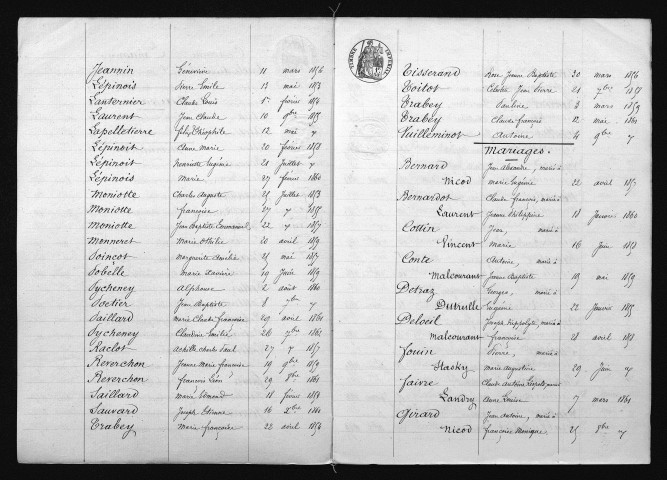 Jeannin Geneviève 11 mars 1856
Lépinois Pierre Emile 13 mai 1853
Lanternier Claude Louis 15 février 1854
Laurent Jean Claude 10 9bre 1855
Lapelletierre Félix Théophile 12 mai "
Lépinoit Anne Marie 20 février 1858
Lépinoit Henriette Eugénie 21 juillet "
Lépinois Marie 27 février 1860
Moniotte Charles Auguste 5 juillet 1853
Moniotte Françoise 27 " 1855
Moniotte Jean Baptiste Emmanuel 22 " 1857
Menneret Marie Othilie 20 avril 1859
Poincot Marguerite Amélie 21 mai 1857
Sobelle Marie Xavière 19 juin 1859
Pycheney Alphonse 2 août 1860
Poctier Jean Baptiste 8 7bre "
Paillard Marie Claude Françoise 29 avril 1861
Pycheney Claudine Emilie 26 7bre 1862
Raclot Achille Charles Paul 27 " 1857
Reverchon Jeanne Marie Françoise 19 9bre 1859
Reverchon François Léon 29 8bre 1861
Saillard Marie Edmond 18 février 1859
Sauvard Joseph Etienne 16 Xbre 1860
Trabey Marie Françoise 22 avril 1854
TIMBRE IMPERIAL
Tisserand Rose Jeanne Baptiste 20 mars 1856
Toitot Claude Jean Pierre 21 7bre 1857
Trabey Pauline 3 mars 1859
Trabey Claude François 12 mai 1861
Vuilleminot Antoine 4 9bre "
Mariages.
Bernard Jean Alexandre, marié à
Nicod Marie Eugénie 22 avril 1857
Bernardot Claude François, marié à
Laurent Jeanne Philippine 18 Janvier 1860
Cottin Jean, marié à
Vincent Marie 16 Juin 1858
Conte Antoine, marié à
Malcourant Jeanne Baptiste 19 mai 1859
Detraz Georges, marié à
Dutruche Eugénie 22 Janvier 1855
Deloeil Joseph Hippolyte, marié à
Malcourant Françoise 21 avril 1858
Fouin Pierre, marié à
Hasky Marie Augustine 29 Juin "
Faivre Claude Antoine
Landry Anne Louise 7 mars 1861
Girard Jean Antoine, marié à
Nicod Françoise Monique 25 8bre "